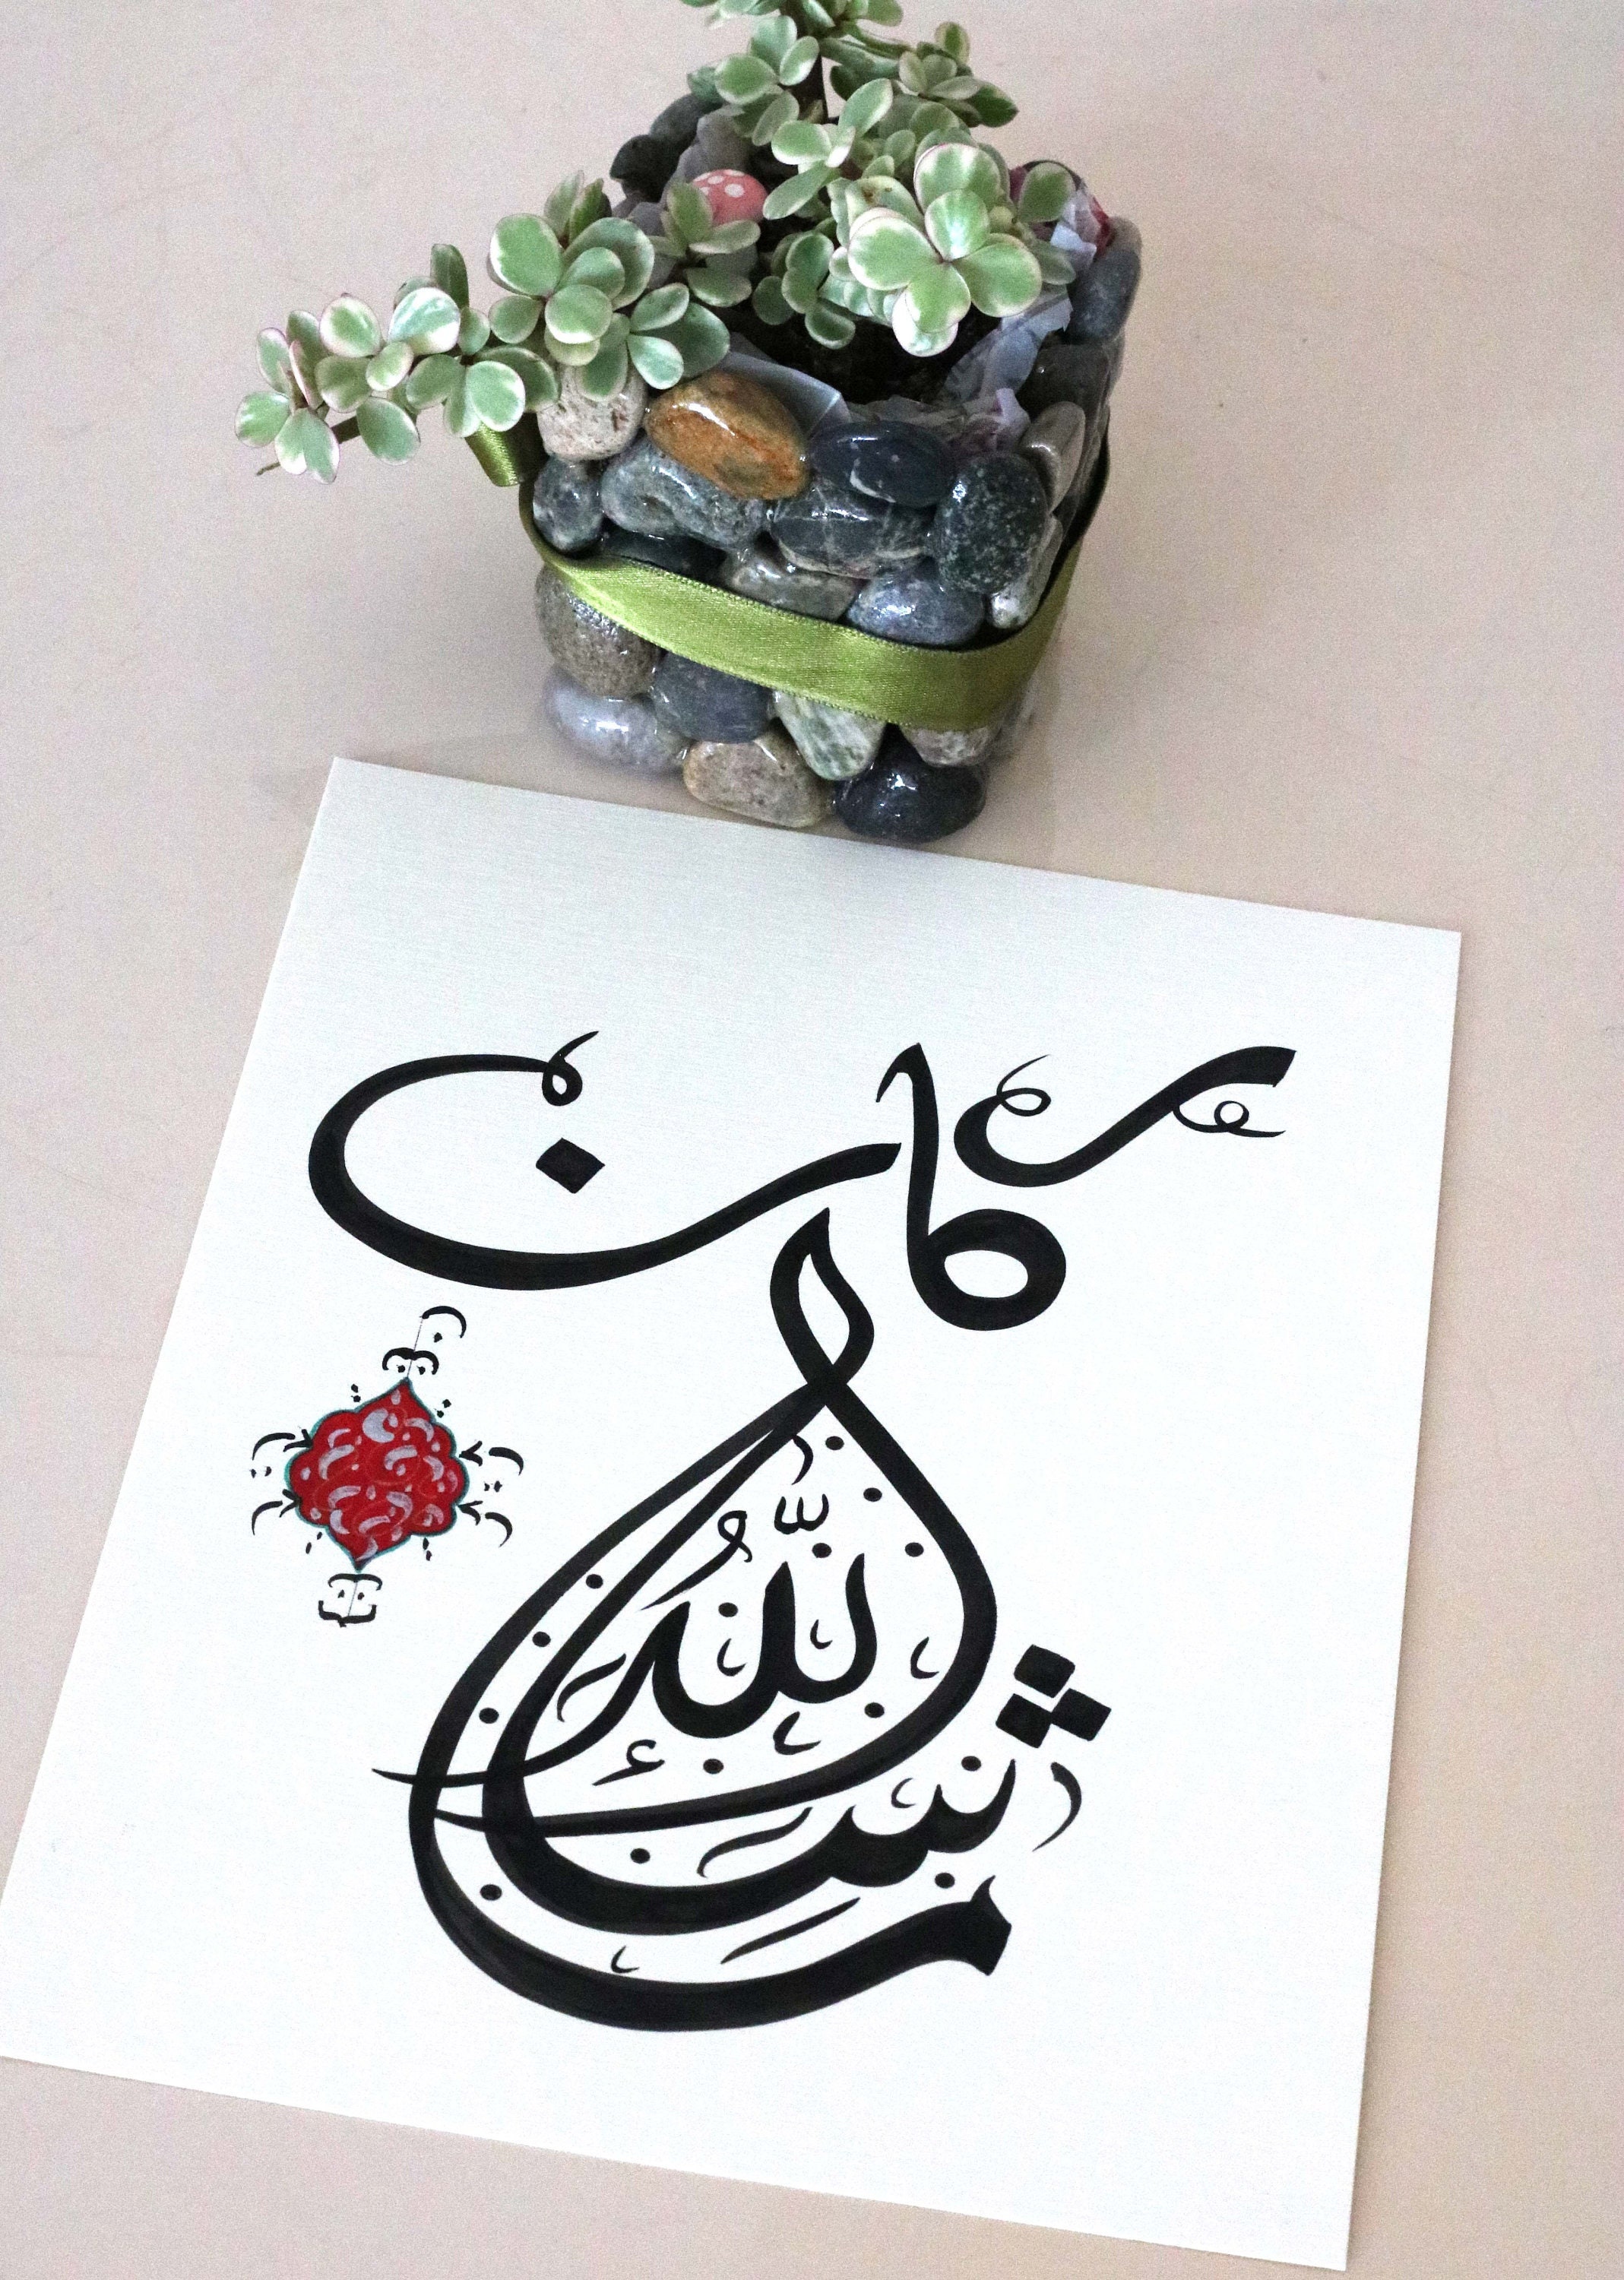 ما شاء اللّٰهُ
كان